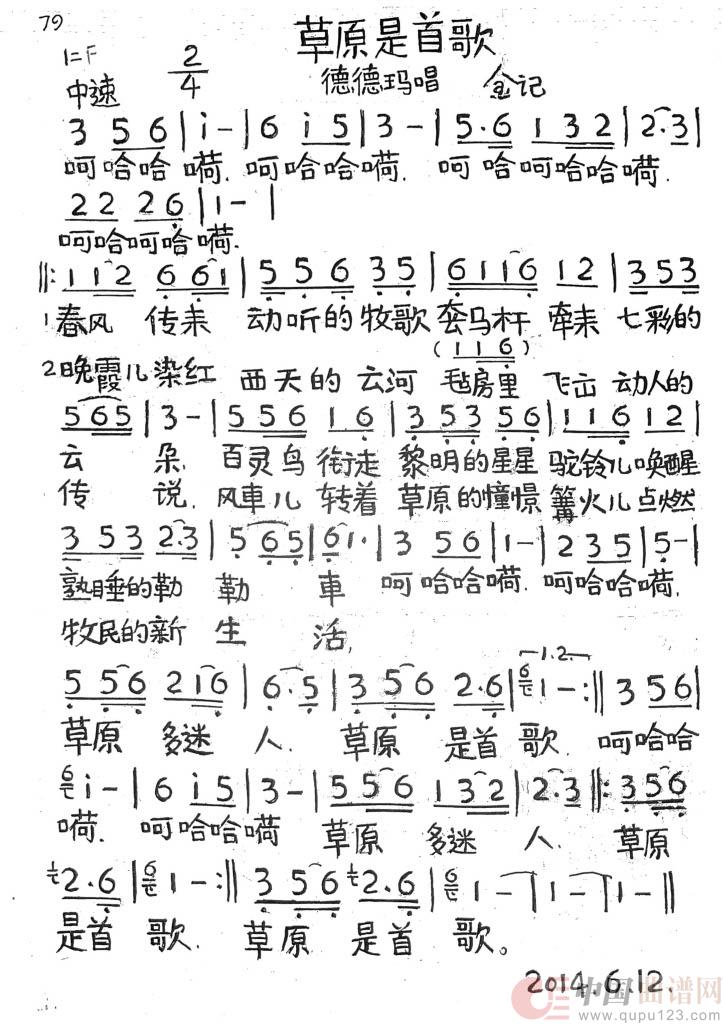 79
草原是首歌
1=F 2/4
中速 德德玛唱 金记
3 5 6 | i - | 6 i 5 | 3 - | 5. 6 1 3 2 | 2. 3 |
呵哈哈嗬. 呵哈哈嗬. 呵哈呵哈哈嗬.
2 2 2 6 | 1 - |
呵哈呵哈嗬.
||: 1 1 2 6 6 1 | 5 5 6 3 5 | 6 1 1 6 1 2 | 3 5 3
1春风 传来 动听的牧歌 套马杆 牵来 七彩的
(1 1 6)
2晚霞儿染红 西天的云河 毡房里 飞出 动人的
5 6 5 | 3 - | 5 5 6 1 6 | 3 5 3 5 6 | 1 1 6 1 2 |
云 朵. 百灵鸟衔走 黎明的星星 驼铃儿唤醒
传 说. 风車儿 转着 草原的憧憬 篝火儿点燃
3 5 3 2. 3 | 5 6 5 | 6 1. | 3 5 6 | 1 - | 2 3 5 | 5 - |
熟睡的勒 勒 車 呵哈哈嗬. 呵哈哈嗬.
牧民的新 生 活,
1.2.
5 5 6 2 1 6 | 6. 5 | 3 5 6 2. 6 | 6 1 - :|| 3 5 6 |
草原 多迷 人. 草原 是首 歌. 呵哈哈
6 i - | 6 i 5 | 3 - | 5 5 6 1 3 2 | 2. 3 ||: 3 5 6 |
嗬. 呵哈哈嗬 草原 多迷 人. 草原
2. 6 | 6 1 - :|| 3 5 6 2. 6 | 6 1 - | 1 - | 1 - ||
是首 歌. 草原 是首 歌。
2014.6.12.
中国曲谱网
www.qupu123.com